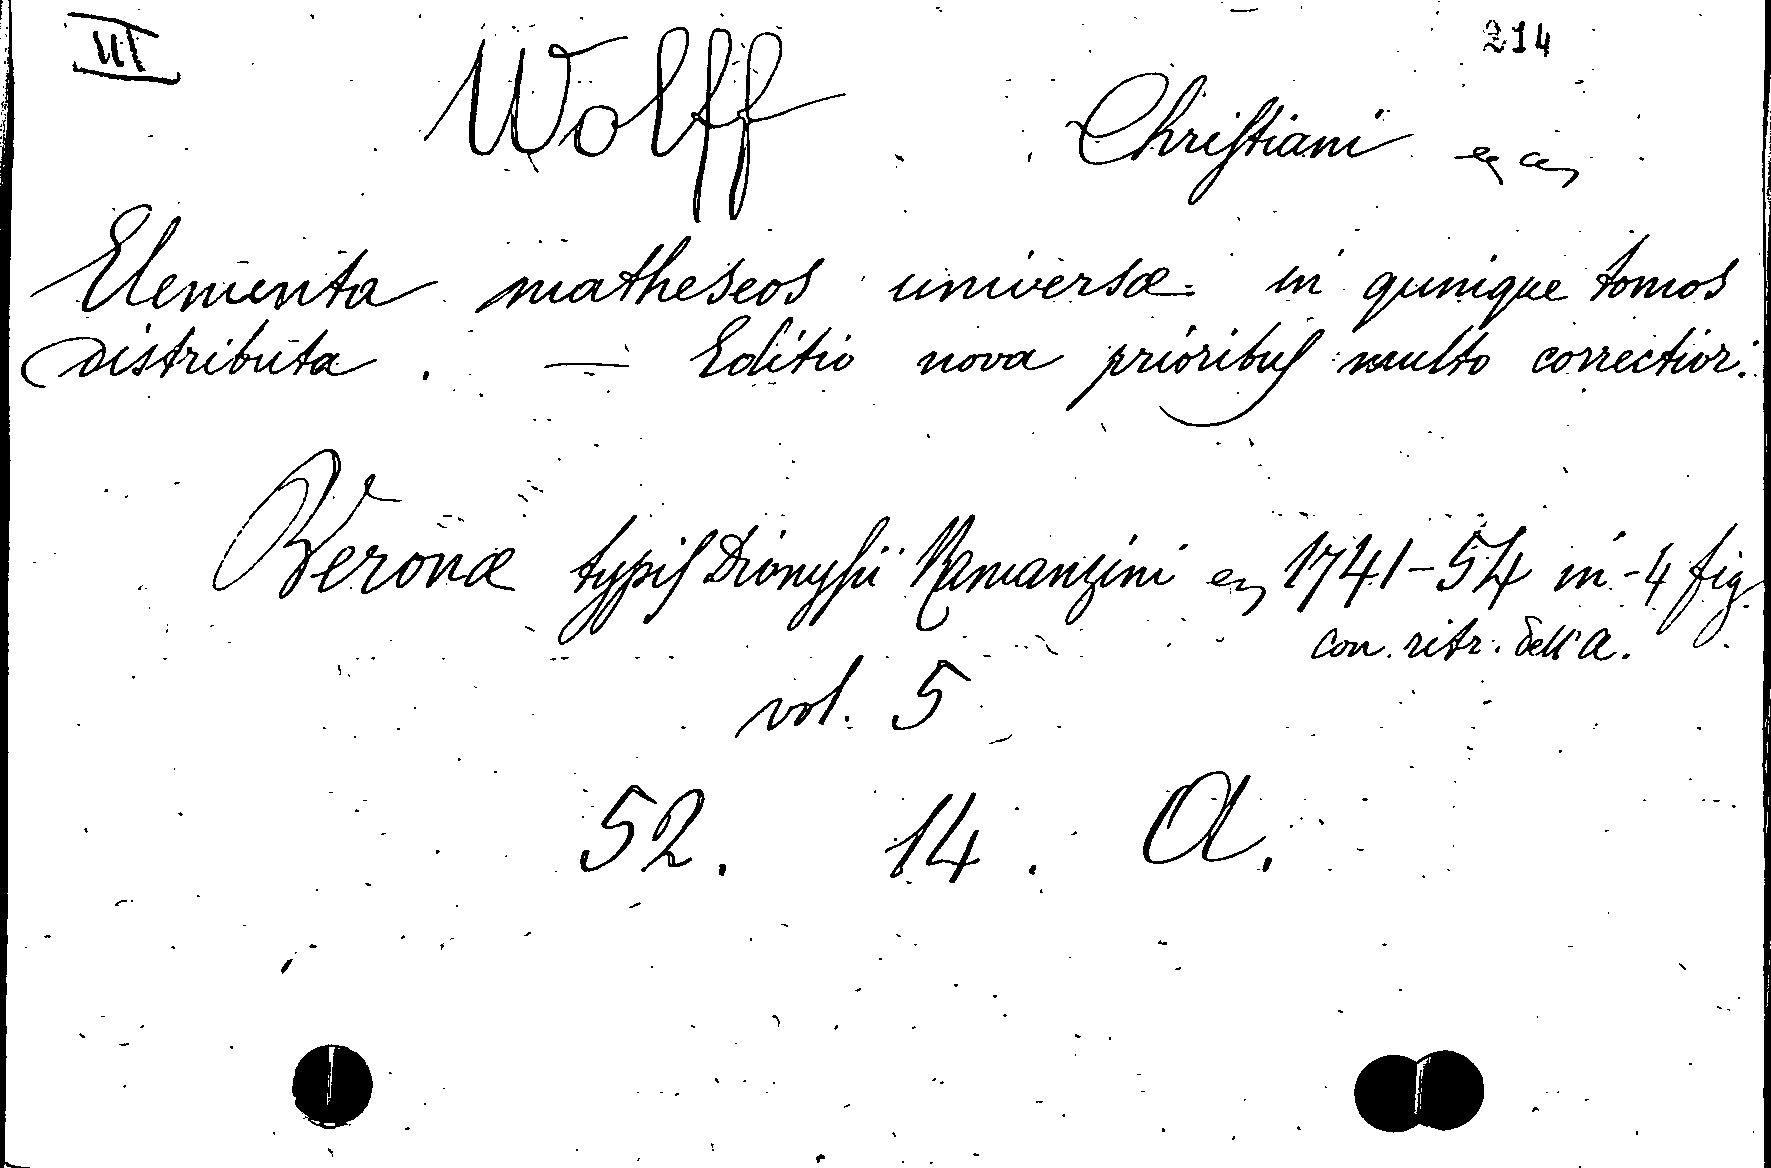 III 214
Wolff Christiani
Elementa matheseos universæ in quinque tomos
distributa. — Editio nova prioribus multo correctior:
Veronæ typis Dionysii Ramanzini 1741-54 in-4 fig.
con ritr. dell'A.
vol. 5
52. 14. A.